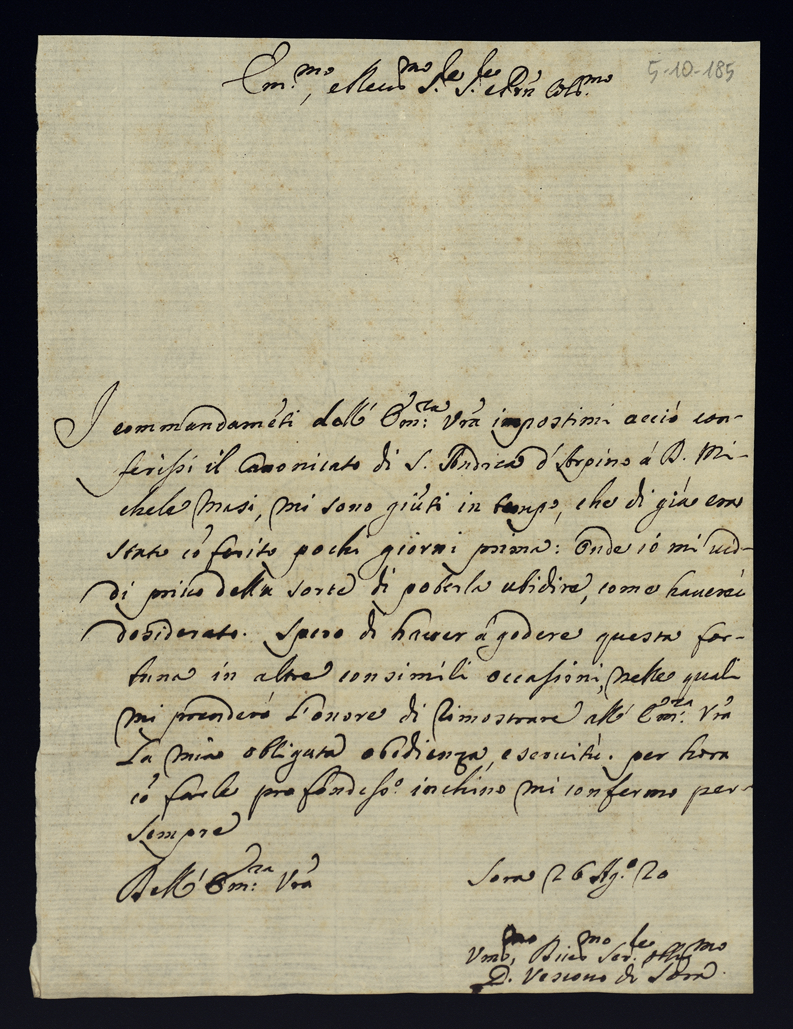 Em.mo, e Reu.mo S.re S.re e Prñ Coll.mo
5-10-185
I commandamẽti dall' Em.za Vrã impostimi acciò con-
ferissi il Canonicato di S. Andrea d'Arpino à D. Mi-
chele Masi, mi sono giũti in tempo, che di già era
stato cõferito pochi giorni prima: Onde io mi ved-
di priuo della sorte di poterla ubidire, come hauerei
desiderato. Spero di hauer à godere questa for-
tuna in altre consimili occassioni, nelle quali
mi prenderò l'onore di dimostrare all' Em.za Vrã
la mia obligata obidienza, e seruitù. per hora
cõ farle profondiss.o inchino mi confermo per-
sempre
Dell' Em.za Vrã
Sora 26 Ag.o 20
Vm.mo Deu.mo Ser.re obb.mo
Vescouo di Sora